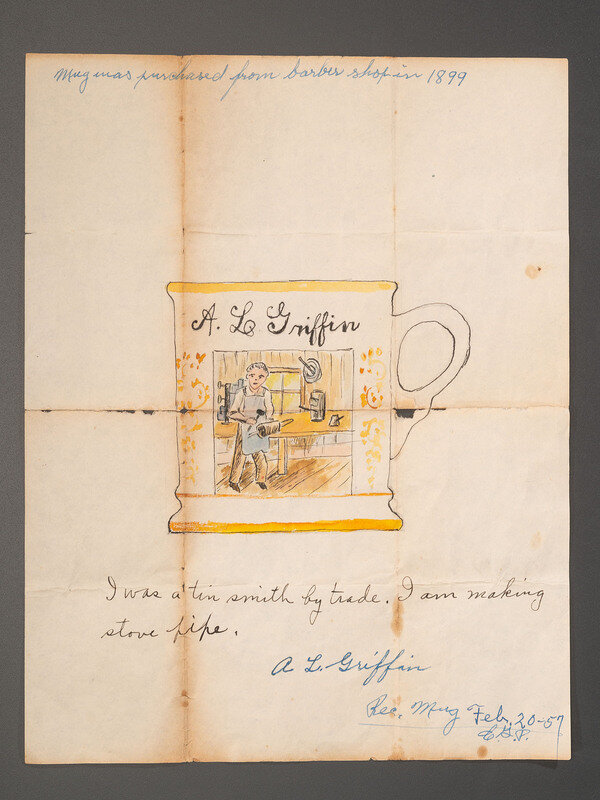 Mug was purchased from barber shop in 1899
A. L. Griffin
I was a tin smith by trade. I am making
stove pipe.
A L. Griffin
Rec. Mug Feb. 20-57
E.G.P.